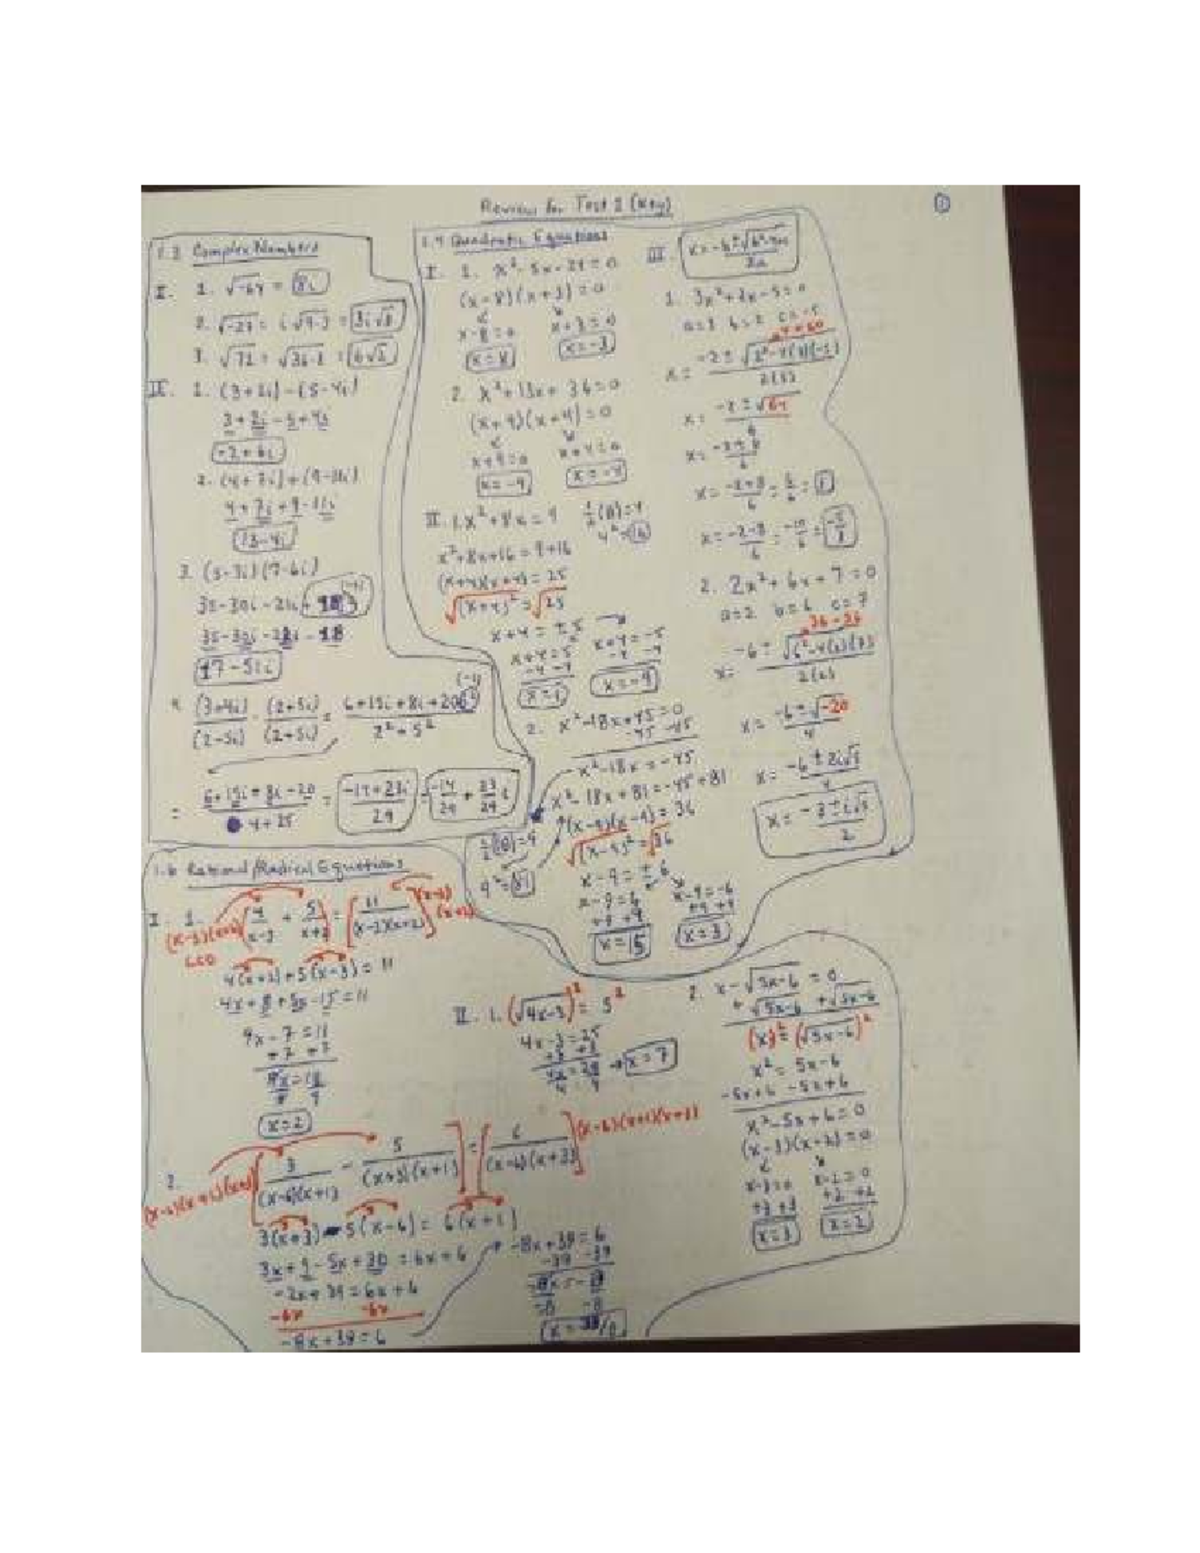 Review for Test 2 (Key)
1
1.3 Complex Numbers
I. 1. √-64 = 8i
2. √-27 = i√9·3 = 3i√3
3. √72 = √36·2 = 6√2
II. 1. (3+2i)-(5-4i)
3+2i-5+4i
-2+6i
2. (4+7i)+(9-11i)
4+7i+9-11i
13-4i
3. (5-3i)(7-6i)
35-30i-21i+18 (-1)
35-30i-21i-18
17-51i
4. (3+4i)/(2-5i) · (2+5i)/(2+5i) = (6+15i+8i+20i² (-1))/(2²+5²)
= (6+15i+8i-20)/(4+25) = (-14+23i)/29 = -14/29 + 23/29 i
1.4 Quadratic Equations
I. 1. x²-5x-24=0
(x-8)(x+3)=0
x-8=0 x+3=0
x=8 x=-3
2. x²+13x+36=0
(x+9)(x+4)=0
x+9=0 x+4=0
x=-9 x=-4
II. 1. x²+8x=9 ½(8)=4
4²=16
x²+8x+16=9+16
(x+4)(x+4)=25
√(x+4)²=√25
x+4=±5
x+4=5 x+4=-5
-4 -4 -4 -4
x=1 x=-9
2. x²-18x+45=0
-45 -45
x²-18x=-45
x²-18x+81=-45+81
½(18)=9 (x-9)(x-9)=36
9²=81 √(x-9)²=√36
x-9=±6
x-9=6 x-9=-6
+9 +9 +9 +9
x=15 x=3
III. x=-b±√b²-4ac/2a
1. 3x²+2x-5=0
a=3 b=2 c=-5
4+60
x= -2±√2²-4(3)(-5)/2(3)
x= -2±√64/6
x= -2±8/6
x= -2+8/6 = 6/6 = 1
x= -2-8/6 = -10/6 = -5/3
2. 2x²+6x+7=0
a=2 b=6 c=7
36-56
x= -6±√6²-4(2)(7)/2(2)
x= -6±√-20/4
x= -6±2i√5/4
x= -3±i√5/2
1.6 Rational/Radical Equations
I. 1. (x-3)(x+2) [4/(x-3) + 5/(x+2)] = [11/(x-3)(x+2)] (x-3)(x+2)
LCD
4(x+2)+5(x-3)=11
4x+8+5x-15=11
9x-7=11
+7 +7
9x=18
9 9
x=2
2. (x-6)(x+1)(x+3) [3/(x-6)(x+1) - 5/(x+3)(x+1)] = [6/(x-6)(x+3)] (x-6)(x+1)(x+3)
3(x+3)-5(x-6)=6(x+1)
3x+9-5x+30=6x+6
-2x+39=6x+6
-6x -6x
-8x+39=6
-8x+39=6
-39 -39
x=33/8
II. 1. (√4x-3)²=5²
4x-3=25
+3 +3
4x=28
4 4
x=7
2. x-√5x-6=0
+√5x-6 +√5x-6
(x)²=(√5x-6)²
x²=5x-6
-5x+6 -5x+6
x²-5x+6=0
(x-3)(x-2)=0
x-3=0 x-2=0
+3 +3 +2 +2
x=3 x=2